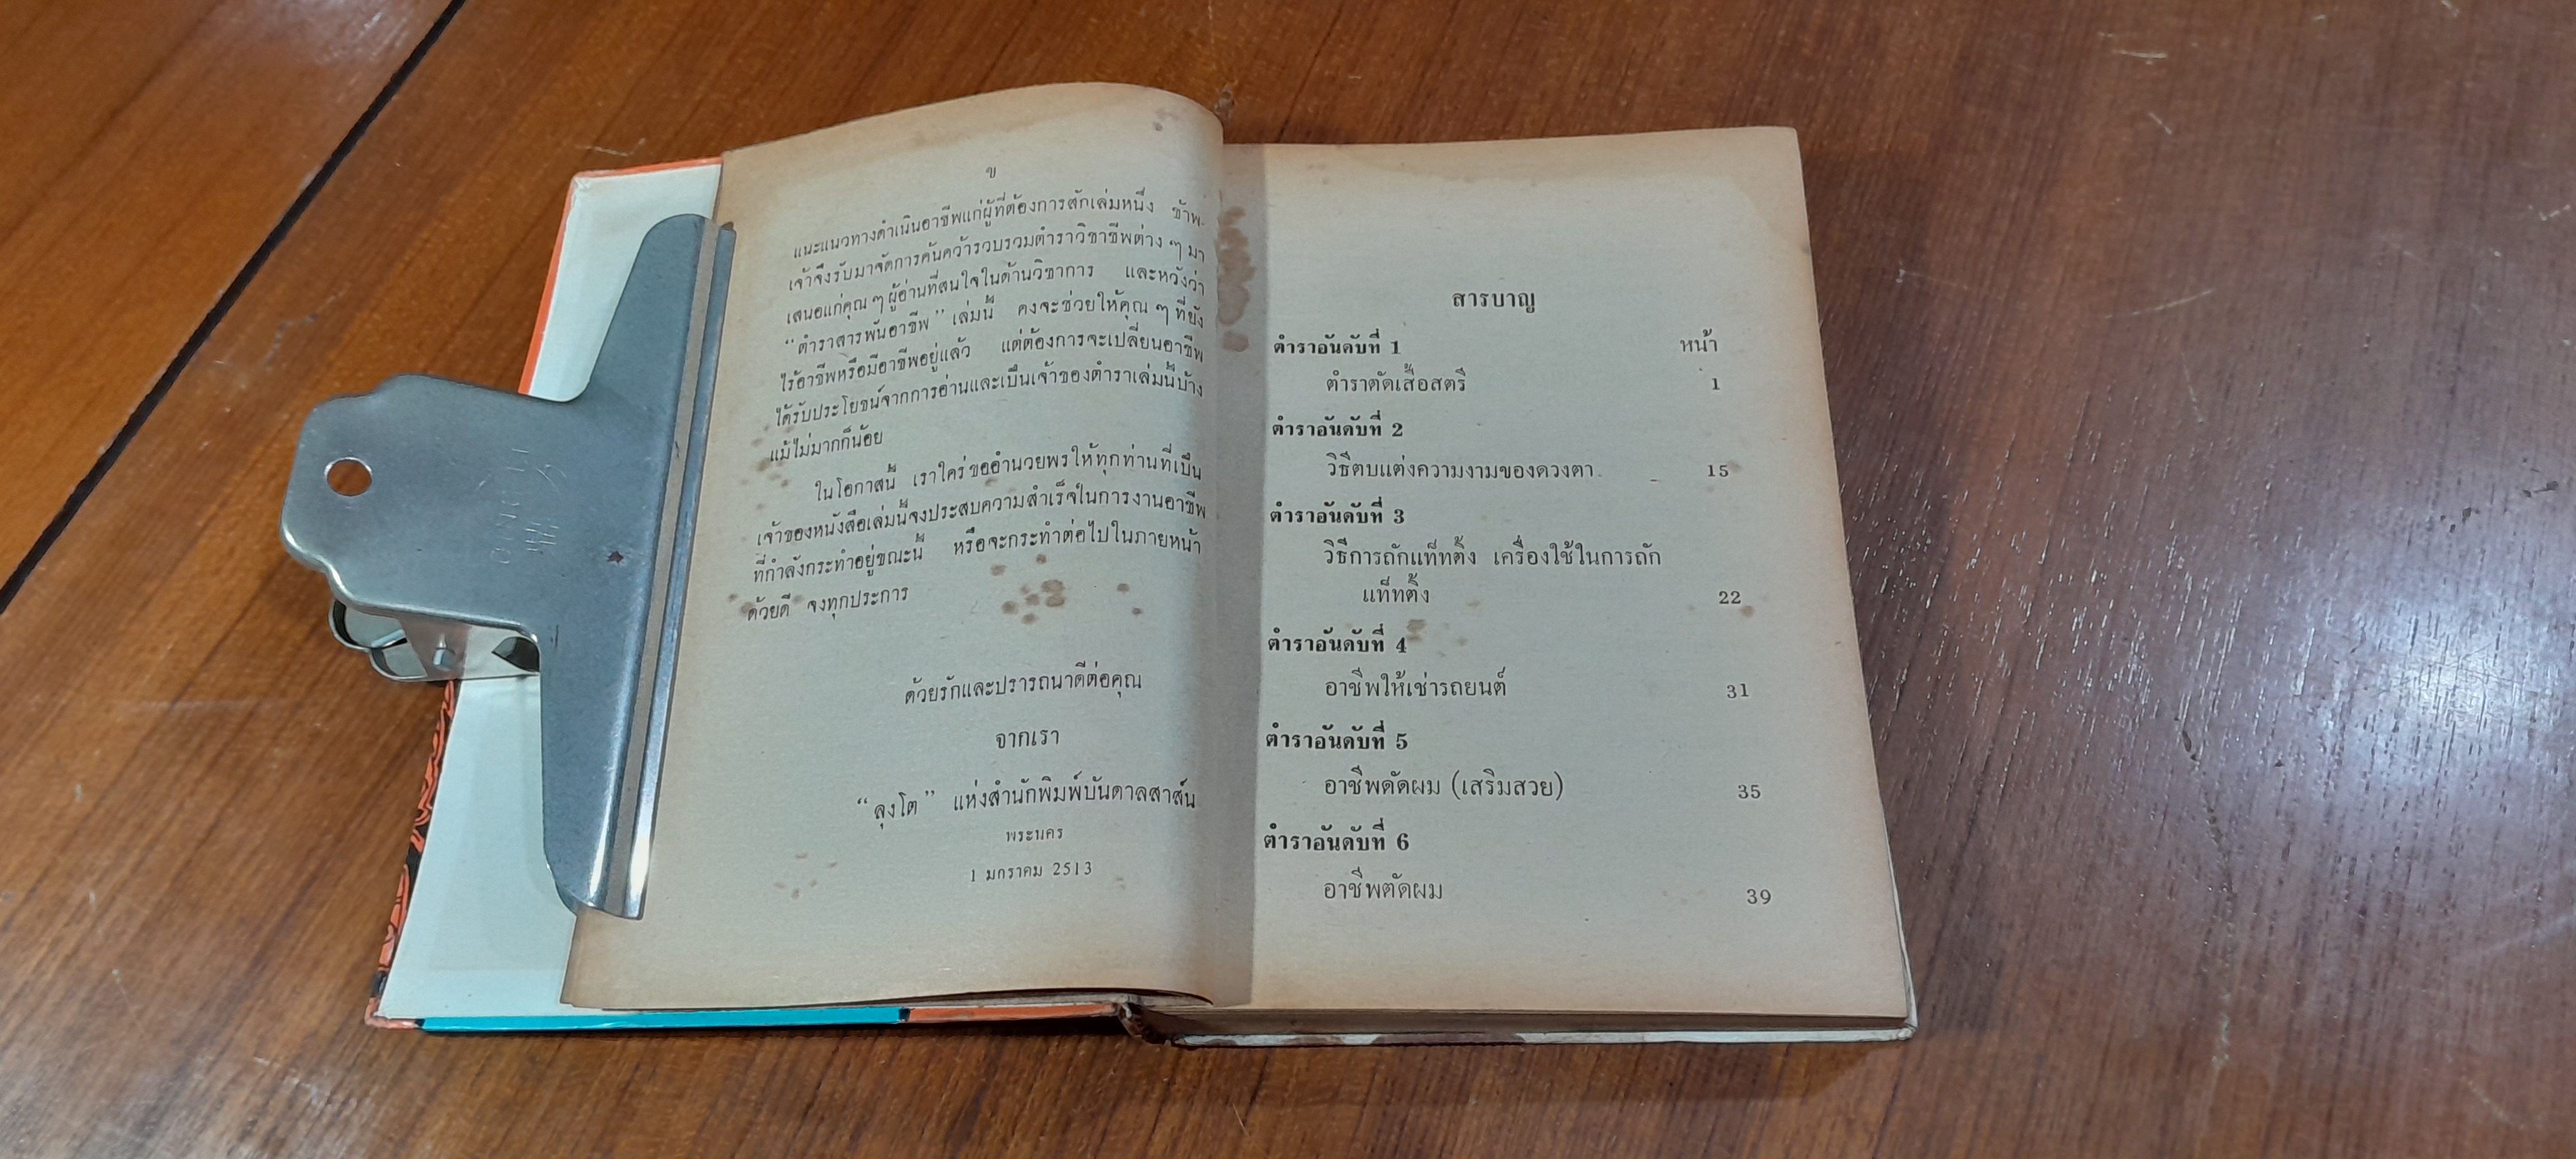 ข
แนะแนวทางดำเนินอาชีพแก่ผู้ที่ต้องการสักเล่มหนึ่ง ข้าพ-
เจ้าจึงรับมาจัดการค้นคว้ารวบรวมตำราวิชาชีพต่าง ๆ มา
เสนอแก่คุณ ๆ ผู้อ่านที่สนใจในด้านวิชาการ และหวังว่า
“ตำราสารพันอาชีพ” เล่มนี้ คงจะช่วยให้คุณ ๆ ที่ยัง
ไร้อาชีพหรือมีอาชีพอยู่แล้ว แต่ต้องการจะเปลี่ยนอาชีพ
ได้รับประโยชน์จากการอ่านและเป็นเจ้าของตำราเล่มนี้บ้าง
แม้ไม่มากก็น้อย
ในโอกาสนี้ เราใคร่ขออำนวยพรให้ทุกท่านที่เป็น
เจ้าของหนังสือเล่มนี้จงประสบความสำเร็จในการงานอาชีพ
ที่กำลังกระทำอยู่ขณะนี้ หรือจะกระทำต่อไปในภายหน้า
ด้วยดี จงทุกประการ
ด้วยรักและปรารถนาดีต่อคุณ
จากเรา
“ลุงโต” แห่งสำนักพิมพ์บันดาลสาส์น
พระนคร
1 มกราคม 2513
สารบาญ
ตำราอันดับที่ 1 หน้า
ตำราตัดเสื้อสตรี 1
ตำราอันดับที่ 2
วิธีตบแต่งความงามของดวงตา 15
ตำราอันดับที่ 3
วิธีการถักแท็ทติ้ง เครื่องใช้ในการถัก
แท็ทติ้ง 22
ตำราอันดับที่ 4
อาชีพให้เช่ารถยนต์ 31
ตำราอันดับที่ 5
อาชีพดัดผม (เสริมสวย) 35
ตำราอันดับที่ 6
อาชีพตัดผม 39